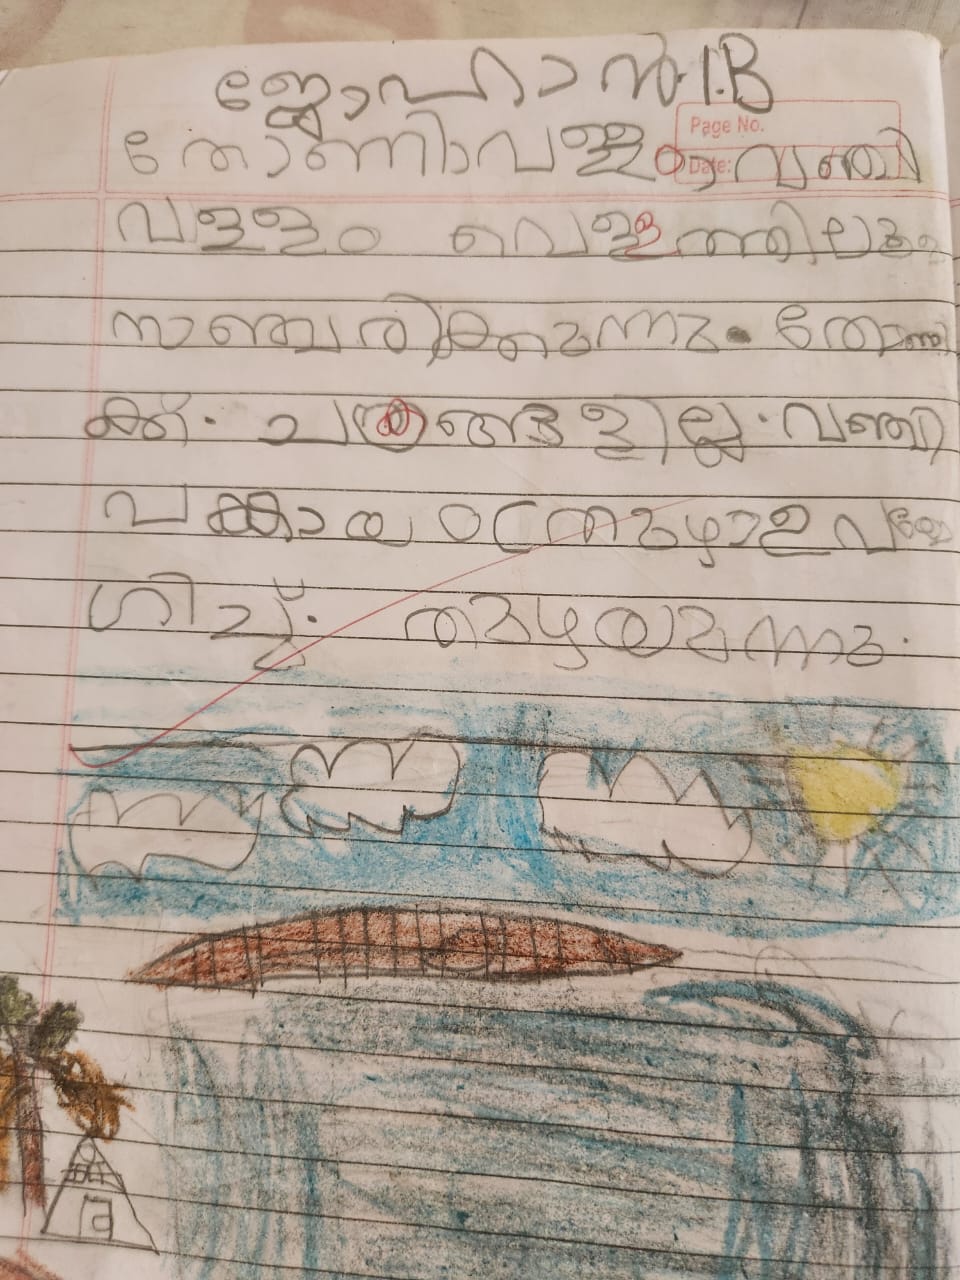 ജോഹാൻ.1.B
Page No.
തോണി വള്ളം, വഞ്ചി
Date:
വള്ളം വെള്ളത്തിലൂടെ
സഞ്ചരിക്കുന്നു. തോണി
ക്ക്. ചക്രങ്ങളില്ല. വഞ്ചി
ഗിച്ച്. തുഴയുന്നു.